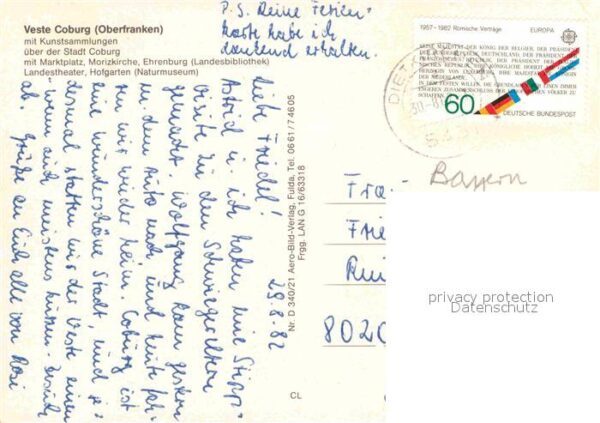 Veste Coburg (Oberfranken)
mit Kunstsammlungen
über der Stadt Coburg
mit Marktplatz, Morizkirche, Ehrenburg (Landesbibliothek)
Landestheater, Hofgarten (Naturmuseum)
P.S. Deine Ferien-
karte habe ich
dankend erhalten.
29.8.82
Liebe Friedel!
Astrid u. ich haben eine Stipp-
visite zu den Schwiegereltern
gemacht. Wolfgang kam gestern
m. dem Auto nach und heute fah-
ren wir wieder heim. Coburg ist
eine wunderschöne Stadt, und je-
desmal statten wir der Veste einen
wenn auch meistens kurzen - Besuch
ab. Grüße an Euch alle von Rosi
Nr. D 340/21 Aero-Bild-Verlag, Fulda, Tel. 06 61/7 46 05
Frgg. LAN G 16/63318
CL
1957-1982 Römische Verträge EUROPA CEPT
60
DEUTSCHE BUNDESPOST
30.-8.
Bayern
Fra
Frie
8020
privacy protection
Datenschutz